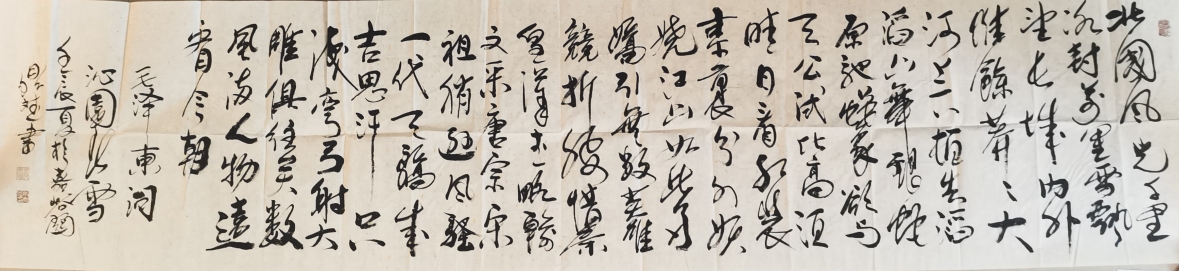 北國風光千里
冰封萬里雪飄
望長城內外
惟餘莽々大
河上下頓失滔
滔山舞銀蛇
原馳蠟象欲與
天公試比高須
晴日看紅裝
素裹分外妖
嬈江山如此多
嬌引無數英雄
競折腰惜秦
皇漢武略輸
文采唐宗宋
祖稍遜風騷
一代天驕成
吉思汗只
識彎弓射大
雕俱往矣數
風流人物還
看今朝
毛澤東詞
沁園春雪
壬辰夏於
書